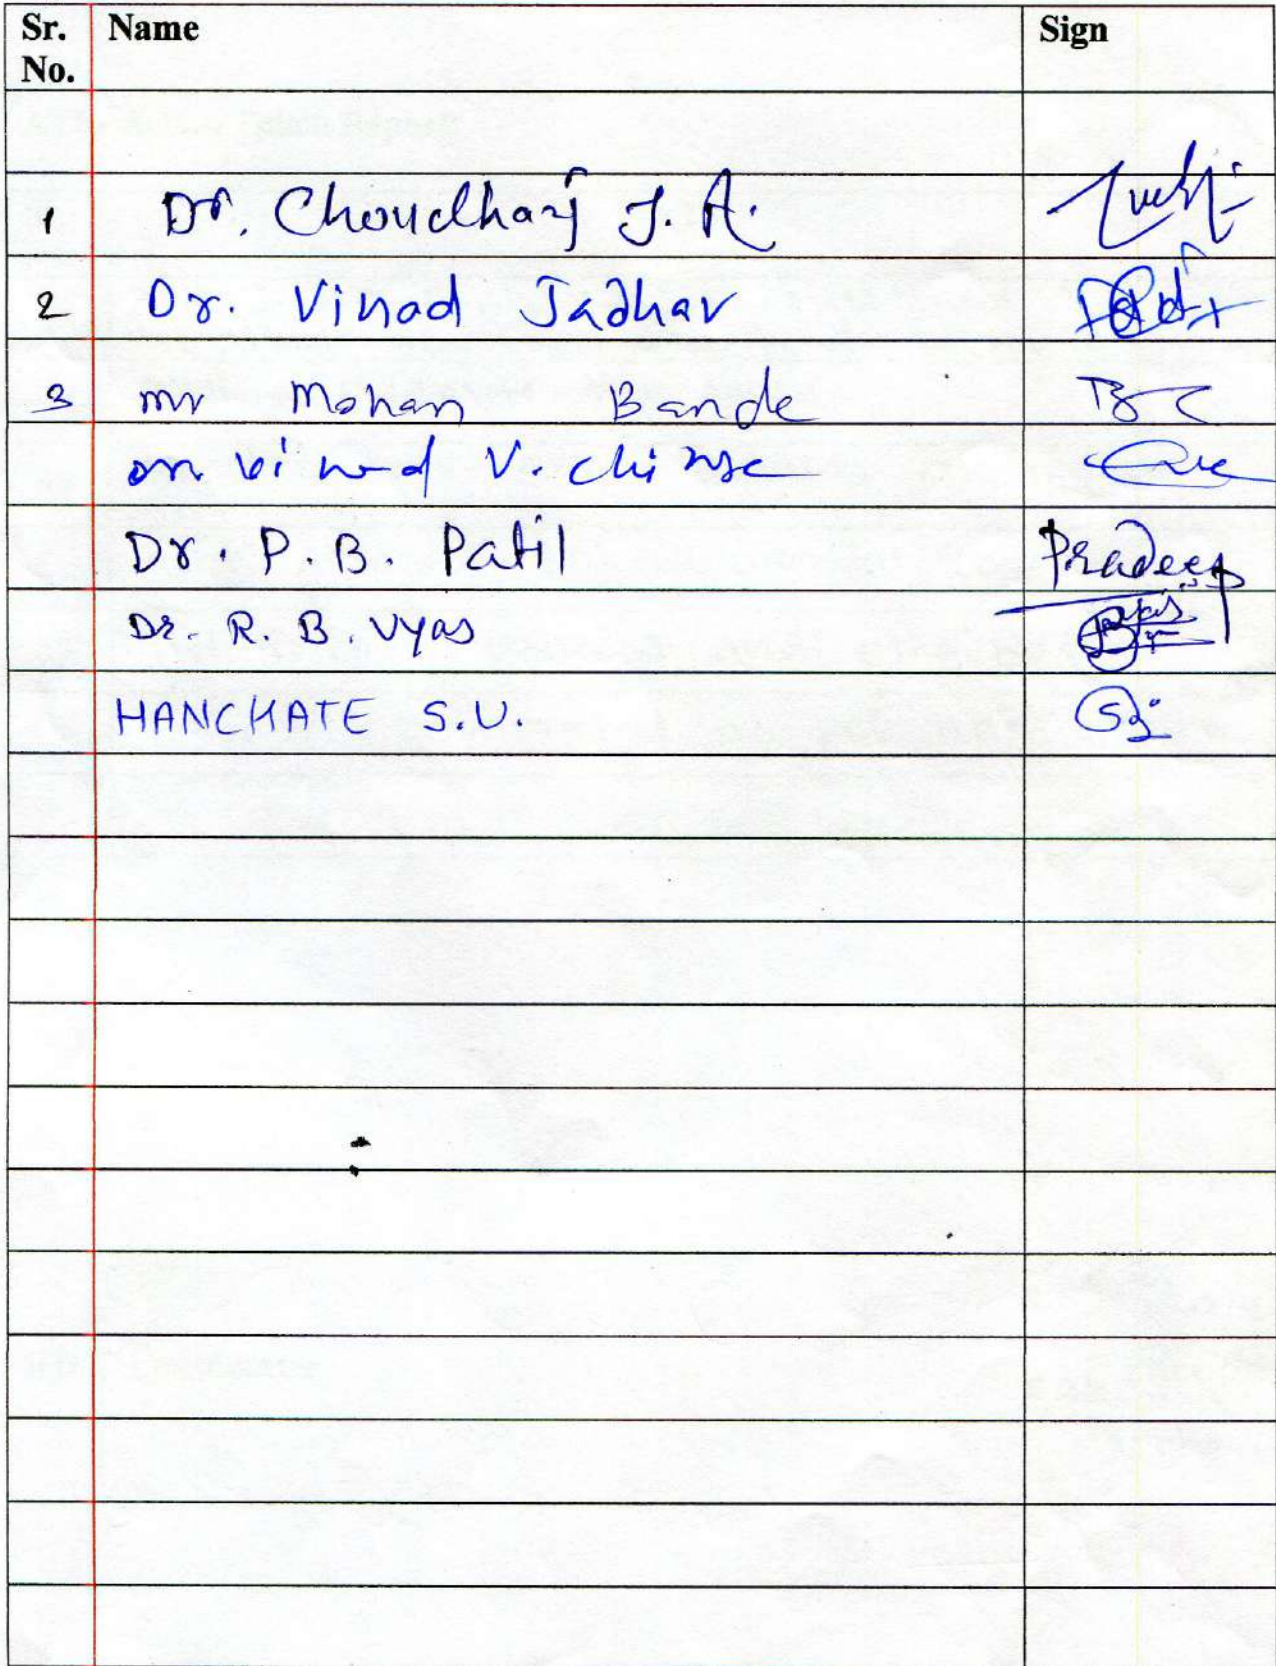 Sr. No. Name Sign
1 Dr. Choudhari J. A.
2 Dr. Vinod Jadhav
3 mr Mohan Bande
V.
Dr. P. B. Patil Pradeep
Dr. R. B. Vyas
HANCHATE S.U.